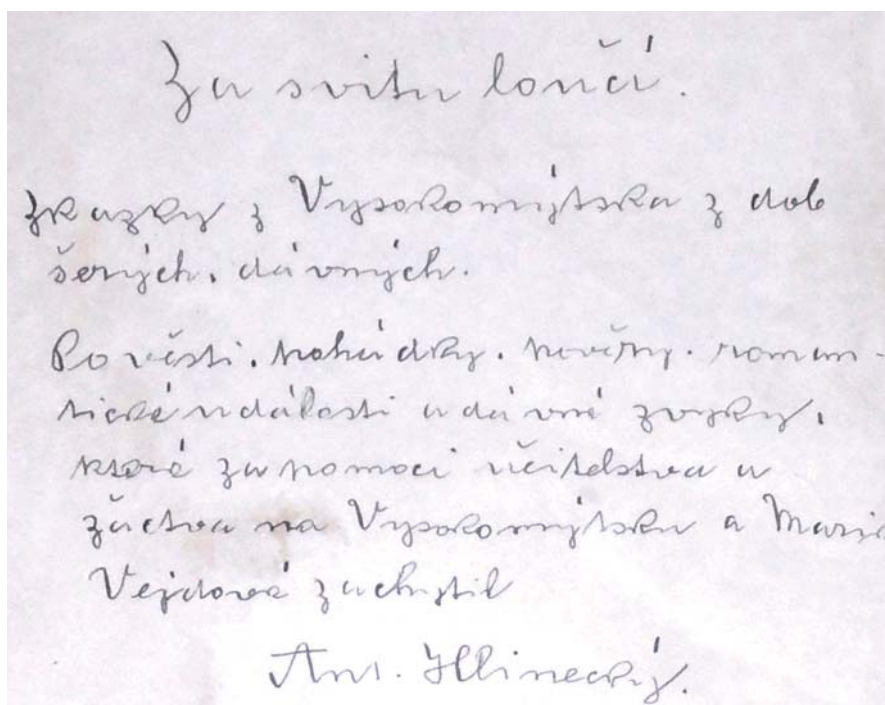 Za svitu loučí.
Zkazky z Vysokomýtska z dob
šerých, dávných.
Pověsti, pohádky, pověry, roman-
tické události a dávné zvyky,
které za pomoci učitelstva a
žactva na Vysokomýtsku a Marie
Vejdové zachytil
Ant. Hlinecký.